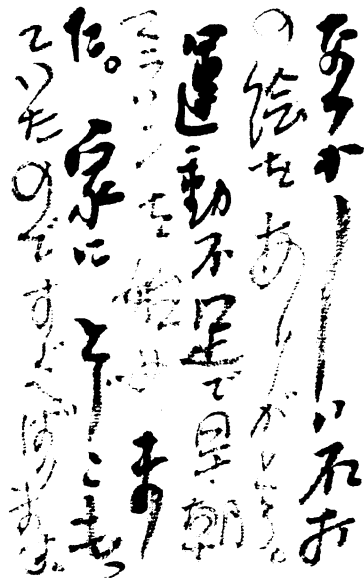 なつかしい石打
の絵をありがとう。
運動不足で早朝
マラソンを始めまし
た。家にとじこもっ
ていたのですぐへばります。